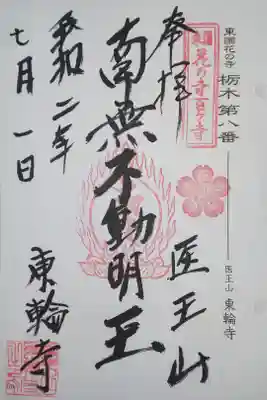 東国花の寺
栃木 第八番
医王山 東輪寺
花の寺百ヶ寺
奉拝
医王山
南無不動明王
令和二年
七月一日
東輪寺